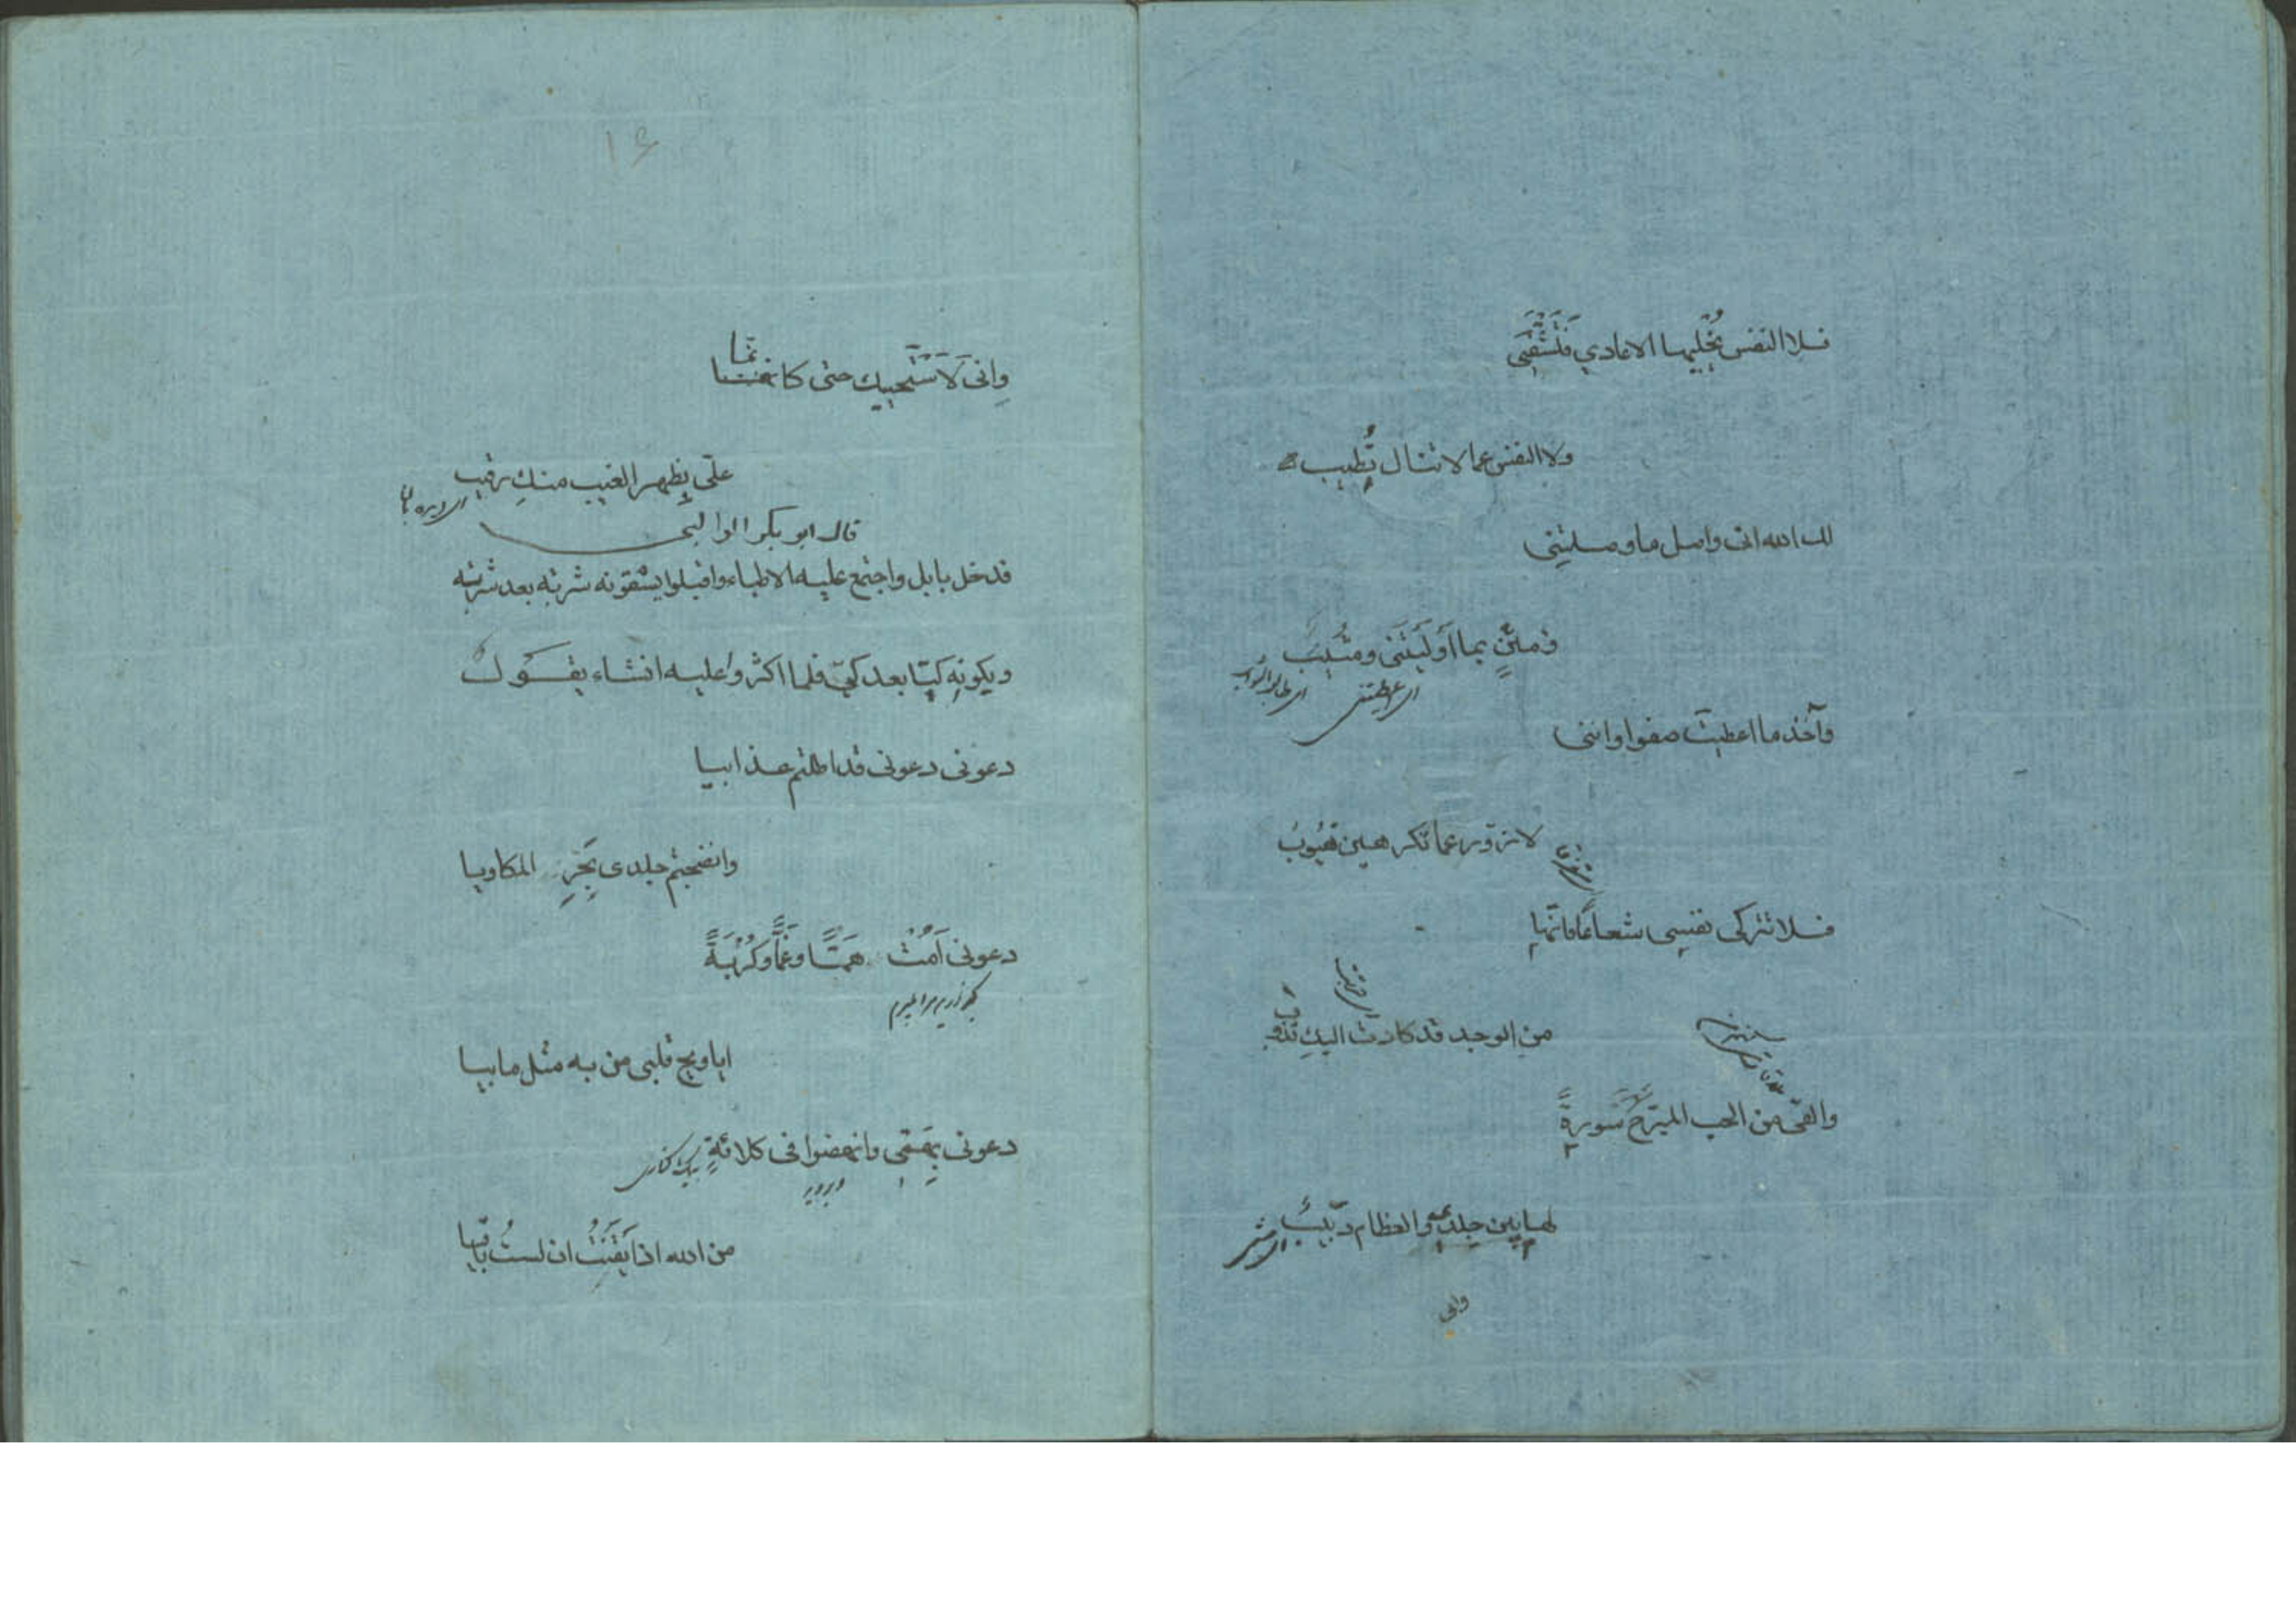 فلا النفس يُخلّيها الاعادي فَتَشْتَفِي
ولا النفس عما لا تنال تُطيب
لك الله انى واصل ما وصلتِنى
ومثنٍ بما اَولَيْتَنى ومثيب
وآخذ ما اعطيت صفوا واننى
لازورّ عما تكرهين هَيُوبُ
فلا تتركى نفسى شعاعًا فانّها
من الوجد قد كادت اليكِ تذوب
والقى من الحب المبرّح سَورةً
لها بين جلدى والعظام دبيبُ
وانى
۱۶
وانى لَاَسْتَحييك حتى كانّما
علىّ بظهر الغيب منكِ رقيب
قال ابو بكر الوالبى
فدخل بابل واجتمع عليه الاطباء واقبلوا يسقونه شربة بعد شربة
ويكونه كيّا بعد كىّ فلما اكثروا عليه انشاء يقول
دعونى دعونى قد اطلتم عذابيا
وانضجتم جلدى بَحَرِّ المكاويا
دعونى اَمُتْ هَمًّا وغَمًّا وكُرْبَةً
ايا ويح قلبى من به مثل مابيا
دعونى بِهَمّى وانهضوا فى كلائةٍ
من الله اذ اَيْقَنْتُ ان لستُ باقيا